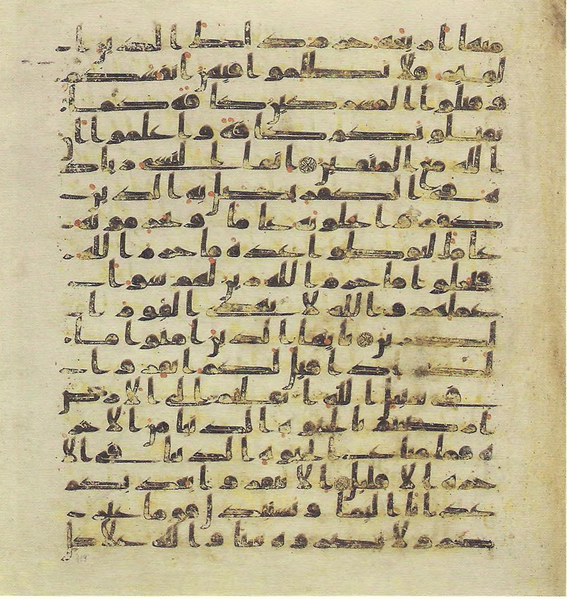 منها اربعة حرم ذلك الدين ا
لقيم فلا تظلموا فيهن انفسكم
و قتلوا المشركين كافة كما
يقتلونكم كافة و اعلموا ان
الله مع المتقين انما النسى زياد
ة في الكفر يضل به الذين
كفروا يحلونه عاما و يحرمونه
عاما ليوطوا عدة ما حرم الله
فيحلوا ما حرم الله زين لهم سو ا
عملهم و الله لا يهدى القوم ا
لكفرين يايها الذين امنوا ما
لكم اذا قيل لكم انفروا
فى سبيل الله اثاقلتم الى الارض
ارضيتم بالحيوة الدنيا من الاخر
ة فما متع الحيوة الدنيا فى الا
خرة الا قليل الا تنفروا يعذبكم
عذابا اليما و يستبدل قوما غير
كم و لا تضروه شيا و الله على كل